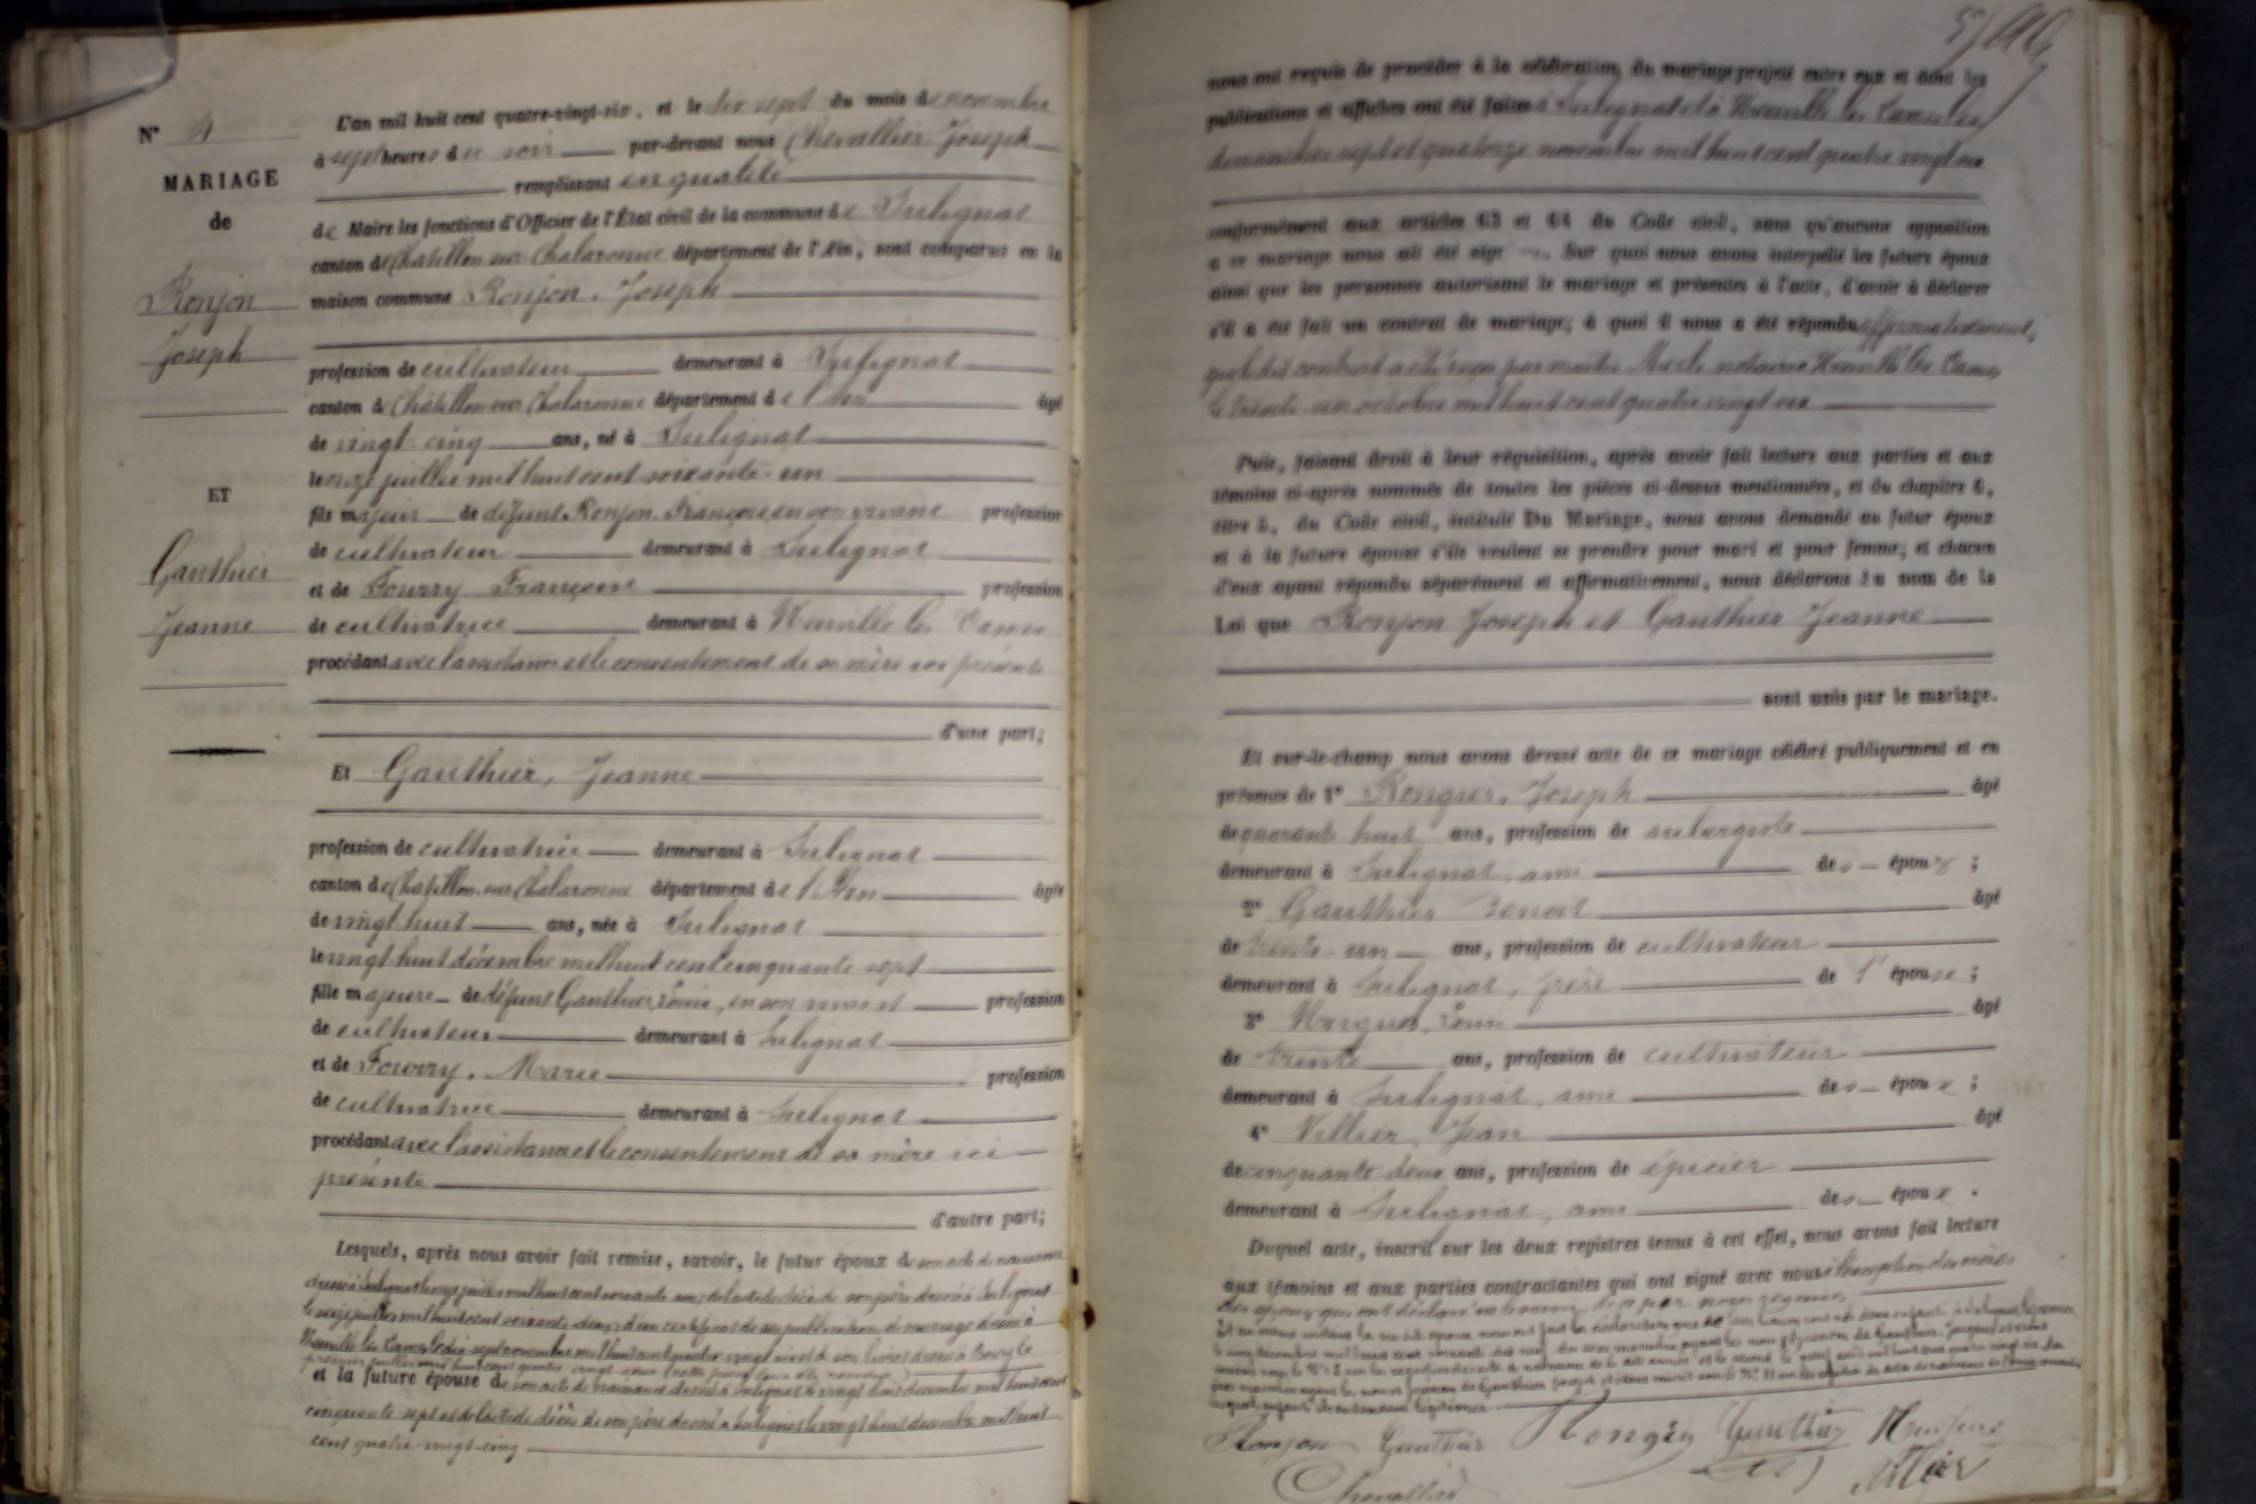 N° 4
MARIAGE
de
Ronjon
Joseph
ET
Gauthier
Jeanne
L'an mil huit cent quatre-vingt-six, et le dix sept du mois de novembre
à sept heures du soir par-devant nous Chevallier Joseph
remplissant en qualité
de Maire les fonctions d'Officier de l'État civil de la commune de Sulignat
canton de Châtillon sur Chalaronne département de l'Ain, sont comparus en la
maison commune Ronjon, Joseph
profession de cultivateur demeurant à Sulignat
canton de Châtillon sur Chalaronne département de l'Ain âgé
de vingt-cinq ans, né à Sulignat
le onze juillet mil huit cent soixante-un
fils majeur de défunt Ronjon François en son vivant profession
de cultivateur demeurant à Sulignat
et de Fourry Françoise profession
de cultivatrice demeurant à Neuville les Dames
procédant avec l'assistance et le consentement de sa mère ici présente
d'une part;
Et Gauthier, Jeanne
profession de cultivatrice demeurant à Sulignat
canton de Châtillon sur Chalaronne département de l'Ain âgée
de vingt-huit ans, née à Sulignat
le vingt-huit décembre mil huit cent cinquante-sept
fille majeure de défunt Gauthier, Louis, en son vivant profession
de cultivateur demeurant à Sulignat
et de Fourry, Marie profession
de cultivatrice demeurant à Sulignat
procédant avec l'assistance et le consentement de sa mère ici
présente
d'autre part;
Lesquels, après nous avoir fait remise, savoir, le futur époux de son acte de naissance
dressé à Sulignat le onze juillet mil huit cent soixante un; de l'acte de décès de son père dressé à Sulignat
le seize juillet mil huit cent soixante-deux; d'un certificat de publication de mariage dressé à
Neuville les Dames le dix-sept novembre mil huit cent quatre-vingt six et de son livret dressé à Bourg le
premier juillet mil huit cent quatre-vingt
et la future épouse de son acte de naissance dressé à Sulignat le vingt huit décembre mil huit cent
cinquante-sept et de l'acte de décès de son père dressé à Sulignat le vingt huit décembre mil huit
cent quatre-vingt-cinq
nous ont requis de procéder à la célébration du mariage projeté entre eux et dont les
publications et affiches ont été faites à Sulignat et à Neuville les Dames les
dimanches sept et quatorze novembre mil huit cent quatre vingt six
conformément aux articles 63 et 64 du Code civil, sans qu'aucune opposition
à ce mariage nous ait été sign Sur quoi nous avons interpellé les futurs époux
ainsi que les personnes autorisant le mariage et présentes à l'acte, d'avoir à déclarer
s'il a été fait un contrat de mariage; à quoi il nous a été répondu affirmativement,
que ledit contrat a été reçu par maître notaire à Neuville les Dames
le trente-un octobre mil huit cent quatre vingt six
Puis, faisant droit à leur réquisition, après avoir fait lecture aux parties et aux
témoins ci-après nommés de toutes les pièces ci-dessus mentionnées, et du chapitre 6,
titre 5, du Code civil, intitulé Du Mariage, nous avons demandé au futur époux
et à la future épouse s'ils veulent se prendre pour mari et pour femme; et chacun
d'eux ayant répondu séparément et affirmativement, nous déclarons au nom de la
Loi que Ronjon Joseph et Gauthier Jeanne
sont unis par le mariage.
Et sur-le-champ nous avons dressé acte de ce mariage célébré publiquement et en
présence de 1° Joseph âgé
de quarante huit ans, profession de aubergiste
demeurant à Sulignat, ami des époux;
2° Gauthier Benoît âgé
de trente-un ans, profession de cultivateur
demeurant à Sulignat, frère de l'épouse;
3° Louis âgé
de trente ans, profession de cultivateur
demeurant à Sulignat, ami des époux;
4° Villier, Jean âgé
de cinquante-deux ans, profession de épicier
demeurant à Sulignat, ami des époux.
Duquel acte, inscrit sur les deux registres tenus à cet effet, nous avons fait lecture
aux témoins et aux parties contractantes qui ont signé avec nous à l'exception des mères
des époux qui ont déclaré ne le savoir de ce par nous requises
Ronjon Gauthier Gauthier
Chevallier